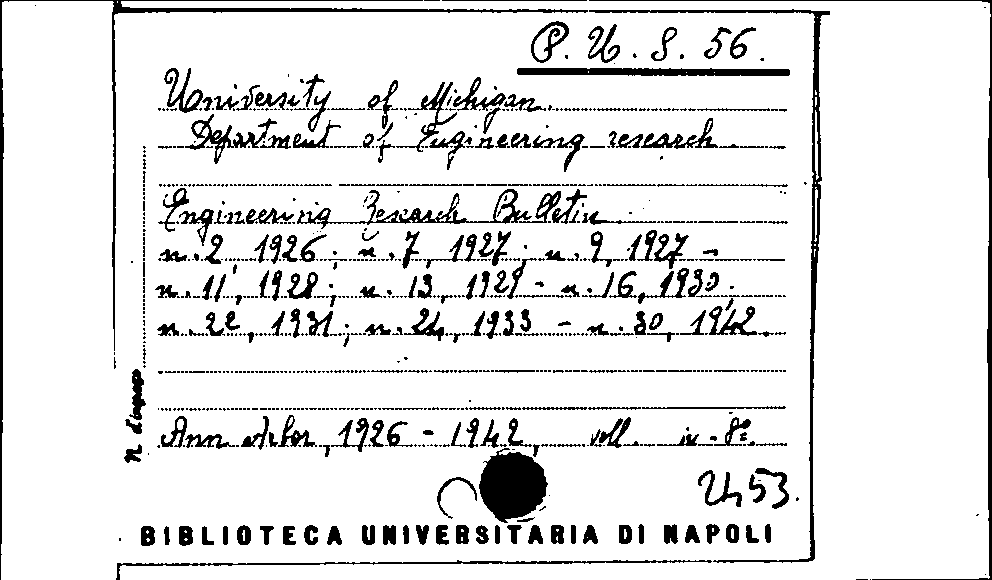 P. U. S. 56.
University of Michigan.
Department of Engineering research.
Engineering Research Bulletin.
n. 2, 1926; n. 7, 1927; n. 9, 1927 -
n. 11, 1928; n. 13, 1929 - n. 16, 1930;
n. 22, 1931; n. 24, 1933 - n. 30, 1942.
N. d'ingresso
Ann Arbor, 1926 - 1942, voll. in-8º.
2453.
BIBLIOTECA UNIVERSITARIA DI NAPOLI